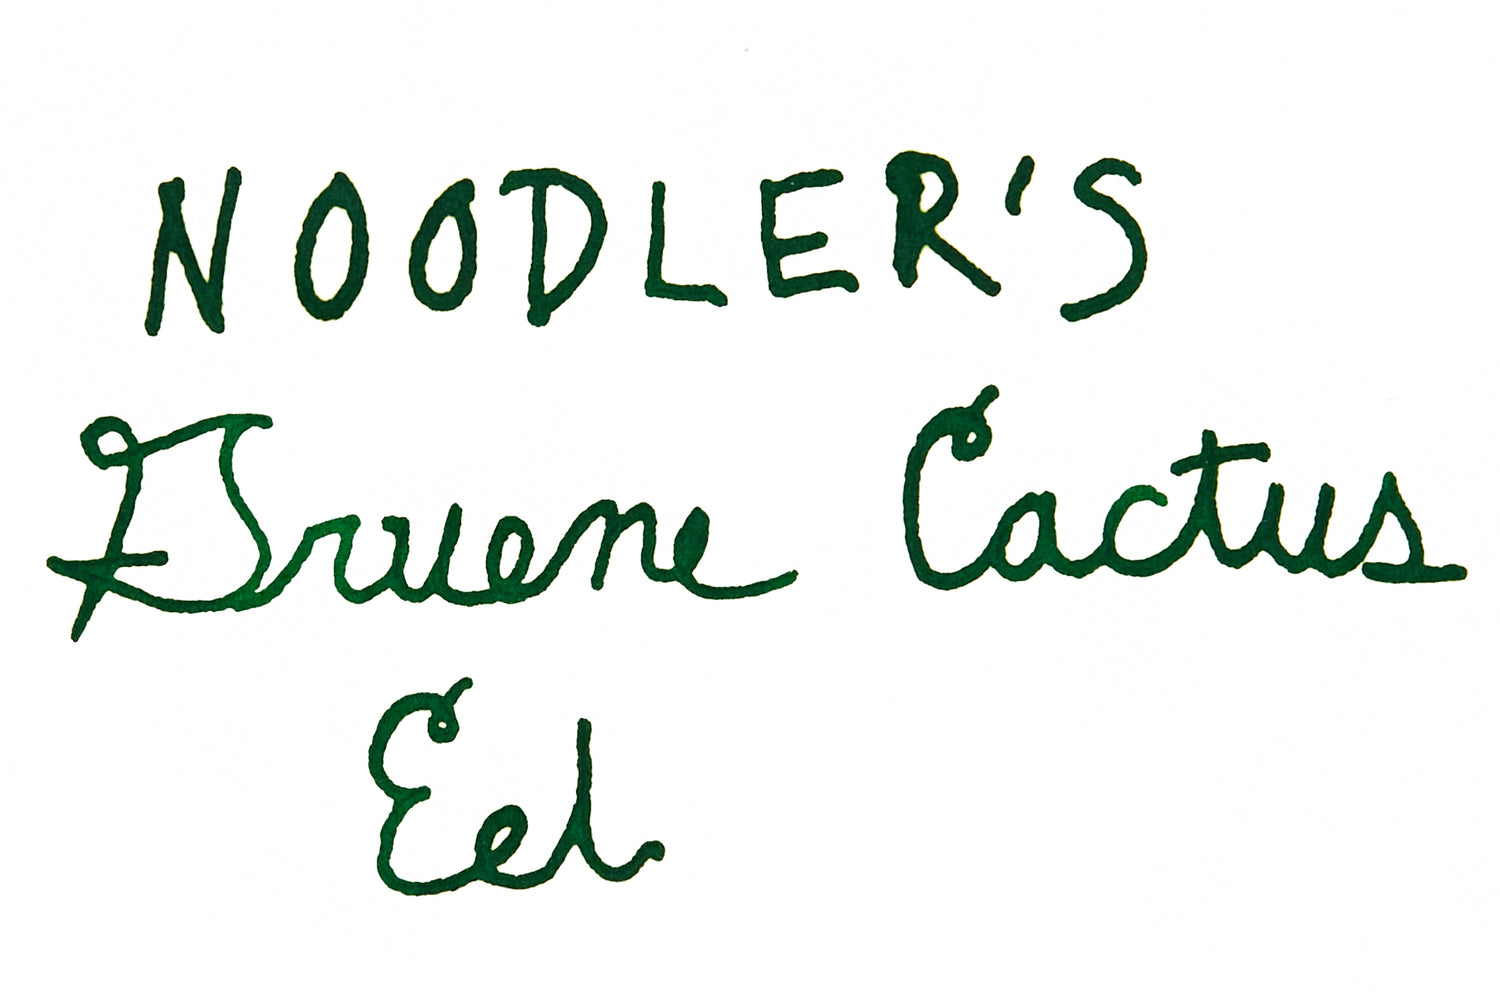 NOODLER'S
Gruene Cactus
Eel